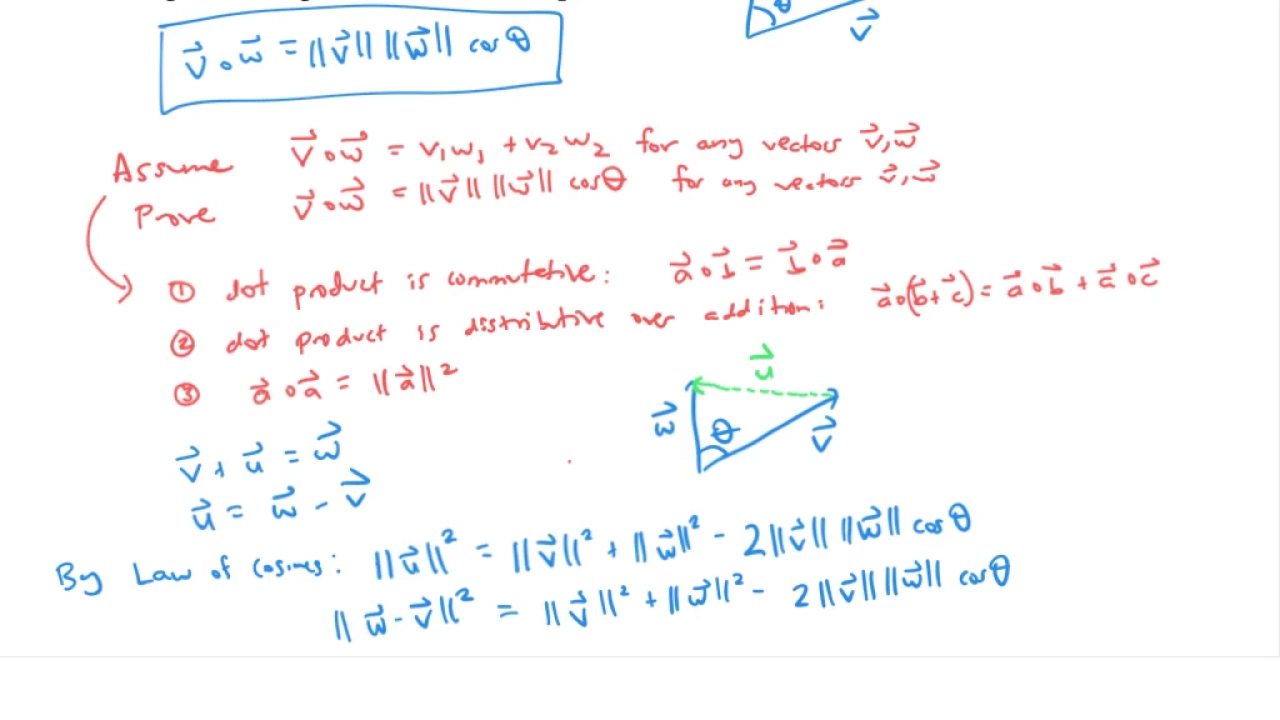 θ
v⃗
v⃗ ∘ w⃗ = ||v⃗|| ||w⃗|| cos θ
Assume v⃗ ∘ w⃗ = v₁w₁ + v₂w₂ for any vectors v⃗, w⃗
Prove v⃗ ∘ w⃗ = ||v⃗|| ||w⃗|| cos θ for any vectors v⃗, w⃗
① dot product is commutative: a⃗ ∘ b⃗ = b⃗ ∘ a⃗
② dot product is distributive over addition: a⃗ ∘ (b⃗ + c⃗) = a⃗ ∘ b⃗ + a⃗ ∘ c⃗
③ a⃗ ∘ a⃗ = ||a⃗||²
u⃗
w⃗ θ v⃗
v⃗ + u⃗ = w⃗
u⃗ = w⃗ - v⃗
By Law of Cosines: ||u⃗||² = ||v⃗||² + ||w⃗||² - 2||v⃗|| ||w⃗|| cos θ
||w⃗ - v⃗||² = ||v⃗||² + ||w⃗||² - 2||v⃗|| ||w⃗|| cos θ